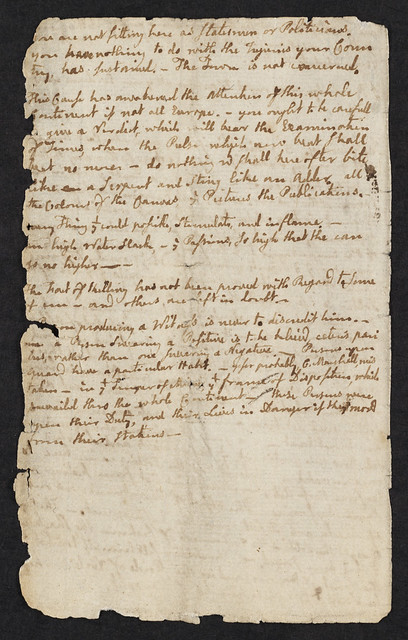 you are not sitting here as Statesmen or Politicians.
you have nothing to do with the Injuries your Coun
try, has sustained. - The Town is not concerned.
This Cause has awakened the Attention of this whole
Continent if not all Europe. - you ought to be careful
to give a Verdict, which will bear the Examination
of Times, when the Pulse which now beat shall
beat no more - do nothing wch shall hereafter bite
like a Serpent and Sting like an Adder, all
the Colours of the Canvas & Pictures the Publications.
every thing yt could possible, Stimulate, and inflame -
in high Water Slack - ye Passions, so high that the can
go no higher -
the Fact of Killing has not been proved with Regard to some
of em - and others, are left in doubt. -
producing a Witness is never to discredit him. -
a Person Swearing a Positive is to be believed, ceteris pari
bus, rather than one Swearing a Negative Persons upon
Guard have a particular Habit, - yt for probably C. Marshall mis
taken - in ye and ye frame of Disposition, which
prevaild thro the whole Continent - these Persons were
upon their Duty, and their Lives in Danger if they movd
from their Stations -